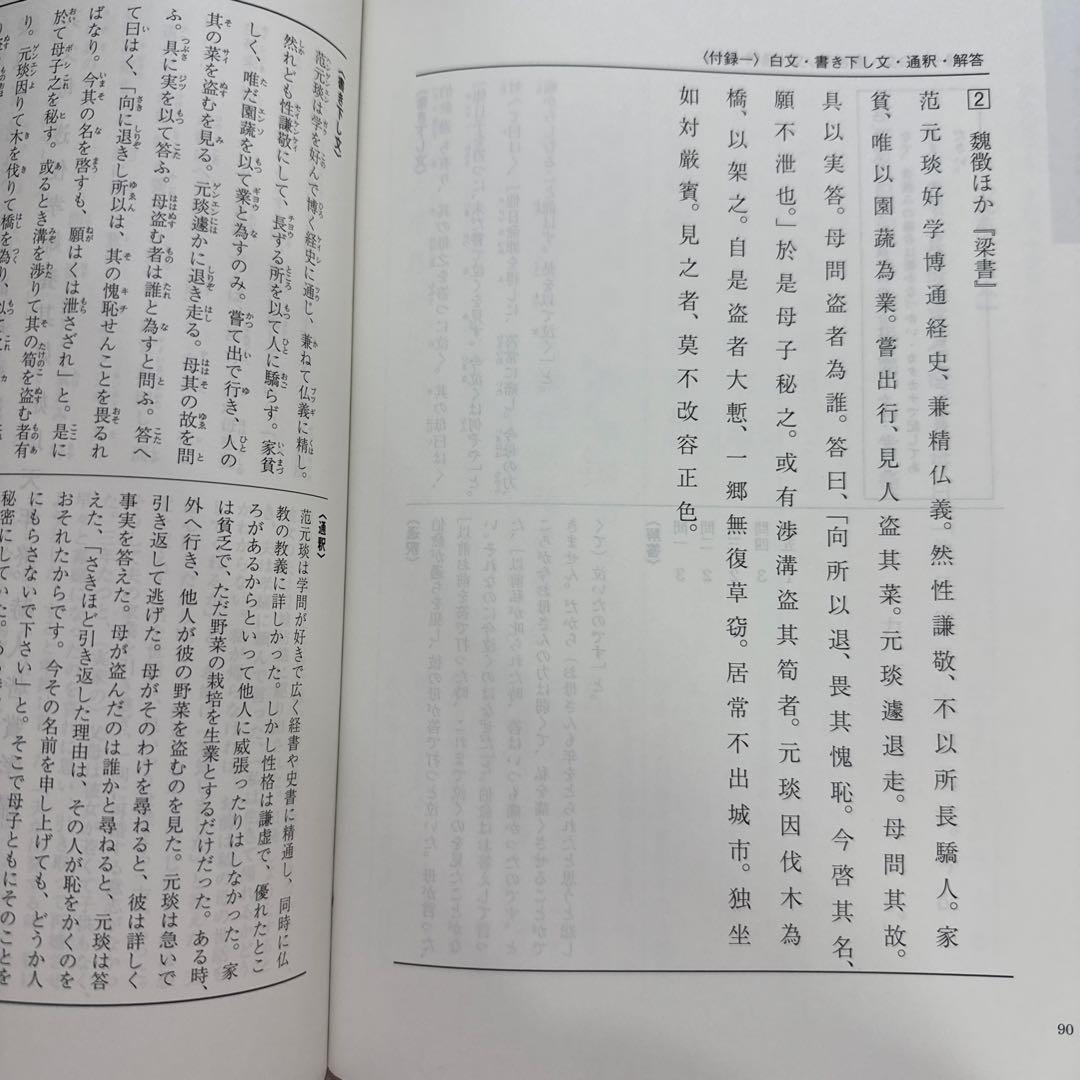 〈付録一〉白文・書き下し文・通釈・解答
2 魏徴ほか『梁書』
范元琰好学博通経史、兼精仏義。然性謙敬、不以所長驕人。家
貧、唯以園蔬為業。嘗出行、見人盗其菜。元琰遽退走。母問其故。
具以実答。母問盗者為誰。答曰、「向所以退、畏其愧恥。今啓其名、
願不泄也。」於是母子秘之。或有渉溝盗其筍者。元琰因伐木為
橋、以架之。自是盗者大慙、一郷無復草窃。居常不出城市。独坐
如対厳賓。見之者、莫不改容正色。
90
〈書き下し文〉
范元琰は学を好んで博く経史に通じ、兼ねて仏義に精し。
然れども性謙敬にして、長ずる所を以て人に驕らず。家貧
しく、唯だ園蔬を以て業と為すのみ。嘗て出で行き、人の
其の菜を盗むを見る。元琰遽かに退き走る。母其の故を問
ふ。具に実を以て答ふ。母盗む者は誰と為すと問ふ。答へ
て曰はく、「向に退きし所以は、其の愧恥せんことを畏るれ
ばなり。今其の名を啓すも、願はくは泄さざれ」と。是に
於て母子之を秘す。或るとき溝を渉りて其の筍を盗む者有
り。元琰因りて木を伐りて橋を為り、
〈通釈〉
范元琰は学問が好きで広く経書や史書に精通し、同時に仏
教の教義に詳しかった。しかし性格は謙虚で、優れたとこ
ろがあるからといって他人に威張ったりはしなかった。家
は貧乏で、ただ野菜の栽培を生業とするだけだった。ある時、
外へ行き、他人が彼の野菜を盗むのを見た。元琰は急いで
引き返して逃げた。母がそのわけを尋ねると、彼は詳しく
事実を答えた。母が盗んだのは誰かと尋ねると、元琰は答
えた、「さきほど引き返した理由は、その人が恥をかくのを
おそれたからです。今その名前を申し上げても、どうか人
にもらさないで下さい」と。そこで母子ともにそのことを
秘密にしていた。